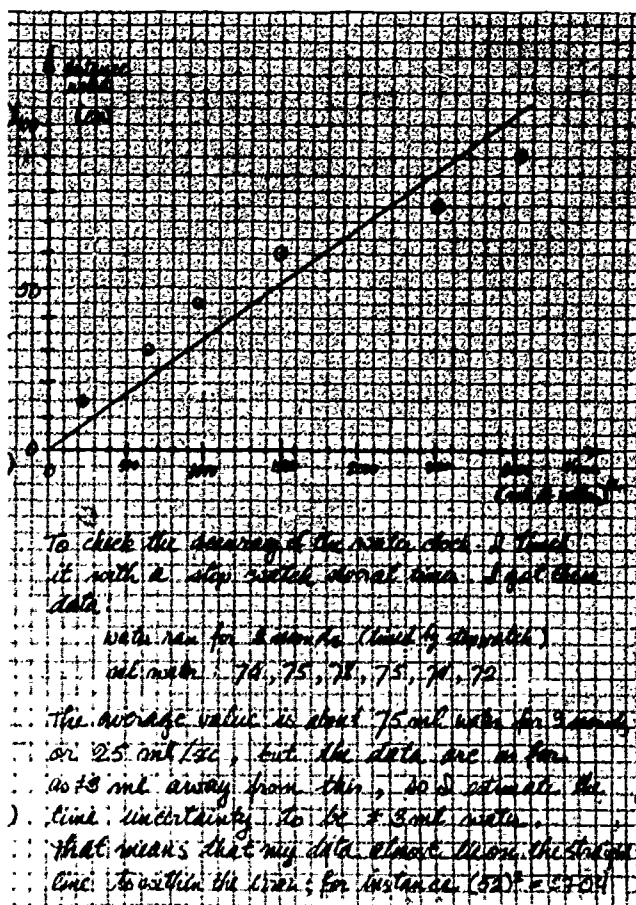 distance
rolled
(cm)
50
0
0 500 1000 1500 2000
(ml of water)²
To check the accuracy of the water clock I timed
it with a stop watch several times. I got these
data:
water ran for 3 seconds (timed by stopwatch)
ml water: 75, 78, 75, 72
The average value is about 75 ml water for 3 seconds
or 25 ml/sec, but the data are as far
as ±3 ml away from this, so I estimate the
time uncertainty to be ± 3 ml water.
that means that my data almost lie on the straight
line to within the error; for instance (52)² = 2704